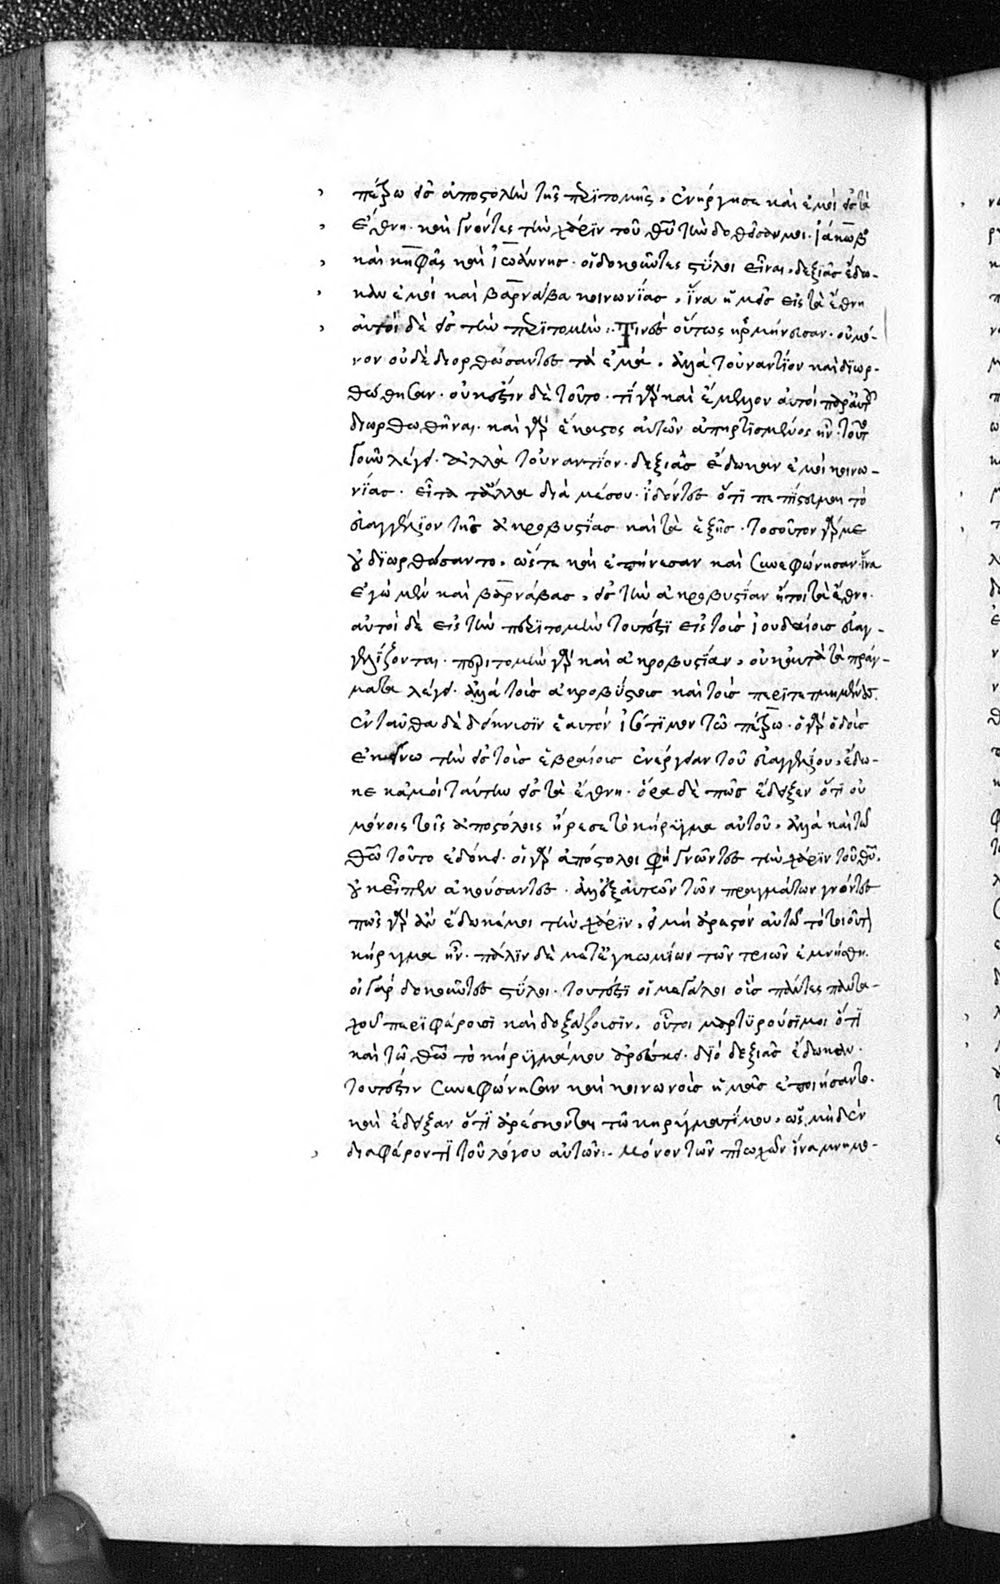 πέτρω εἰς ἀποστολὴν τῆς περιτομῆς, ἐνήργησε καὶ ἐμοὶ εἰς τὰ
ἔθνη. καὶ γνόντες τὴν χάριν τοῦ θυ τὴν δοθεῖσαν μοι. ἰάκωβος
καὶ κηφᾶς καὶ ἰωάννης. οἱ δοκοῦντες στύλοι εἶναι, δεξιὰς ἔδω-
καν ἐμοὶ καὶ βαρνάβα κοινωνίας, ἵνα ἡμεῖς εἰς τὰ ἔθνη
αὐτοὶ δὲ εἰς τὴν περιτομήν:. Τινὲς οὕτως ἡρμήνευσαν. οὐ μό-
νον οὐδὲ διορθώσαντες τὰ ἐμὰ, ἀλλὰ τοὐναντίον καὶ διωρ-
θώθησαν. οὐκ ἔστιν δὲ τοῦτο. τί γὰρ καὶ ἔμελλον αὐτοὶ παρ' αὐτοῦ
διορθωθῆναι. καὶ γὰρ ἕκαστος αὐτῶν ἀπηρτισμένος ἦν. τοῦτο
γοῦν λέγει. ἀλλὰ τοὐναντίον. δεξιὰς ἔδωκαν ἐμοὶ κοινω-
νίας. εἶτα τἄλλα διὰ μέσου. ἰδόντες ὅτι πεπίστευμαι τὸ
εὐαγγέλιον τῆς ἀκροβυστίας καὶ τὰ ἑξῆς. τοσοῦτον γάρ με
οὐ διωρθώσαντο, ὥστε καὶ ἐπῄνεσαν καὶ συνεφώνησαν. ἵνα
ἐγὼ μὲν καὶ βαρνάβας, εἰς τὴν ἀκροβυστίαν ἤτοι τὰ ἔθνη.
αὐτοὶ δὲ εἰς τὴν περιτομὴν τουτέστι εἰς τοὺς ἰουδαίους εὐαγ-
γελίζονται. περιτομὴν γὰρ καὶ ἀκροβυστίαν, οὐκ αὐτὰ τὰ πράγ-
ματα λέγει. ἀλλὰ τοὺς ἀκροβύστους καὶ τοὺς περιτετμημένους.
ἐνταῦθα δὲ δείκνυσιν ἑαυτὸν ἰσότιμον τῶ πέτρω. ὁ γὰρ δοὺς
ἐκείνω τὴν εἰς τοὺς ἑβραίους ἐνέργειαν τοῦ εὐαγγελίου, ἔδω-
κε κἀμοὶ ταύτην εἰς τὰ ἔθνη. ὅρα δὲ πῶς ἔδειξεν ὅτι οὐ
μόνοις τοῖς ἀποστόλοις ἤρεσε τὸ κήρυγμα αὐτοῦ, ἀλλὰ καὶ τῶ
θῶ τοῦτο ἐδόκει. οἱ γὰρ ἀπόστολοι φη γνῶντες τὴν χάριν τοῦ θυ.
οὐκ εἶπεν ἀκούσαντες. ἀλλ' ἐξ αὐτῶν τῶν πραγμάτων γνόντες
πῶς γὰρ ἂν ἔδωκέ μοι τὴν χάριν, εἰ μὴ ἀρεστὸν αὐτῶ τὸ τοιοῦτον
κήρυγμα ἦν. πάλιν δὲ μετ' ἐγκωμίων τῶν τριῶν ἐμνήσθη.
οἱ γὰρ δοκοῦντες στύλοι. τουτέστι οἱ μεγάλοι οὓς πάντες πάντα-
χοῦ περιφέρουσι καὶ δοξάζουσιν, οὗτοι μαρτυροῦσί μοι ὅτι
καὶ τῶ θῶ τὸ κήρυγμά μου ἀρέσκει. διὸ δεξιὰς ἔδωκαν.
τουτέστιν συνεφώνησαν καὶ κοινωνοὺς ἡμᾶς ἐποιήσαντο.
καὶ ἔδειξαν ὅτι ἀρέσκονται τῶ κηρύγματί μου, ὡς μηδὲν
διαφέροντι τοῦ λόγου αὐτῶν:. Μόνον τῶν πτωχῶν ἵνα μνημο-